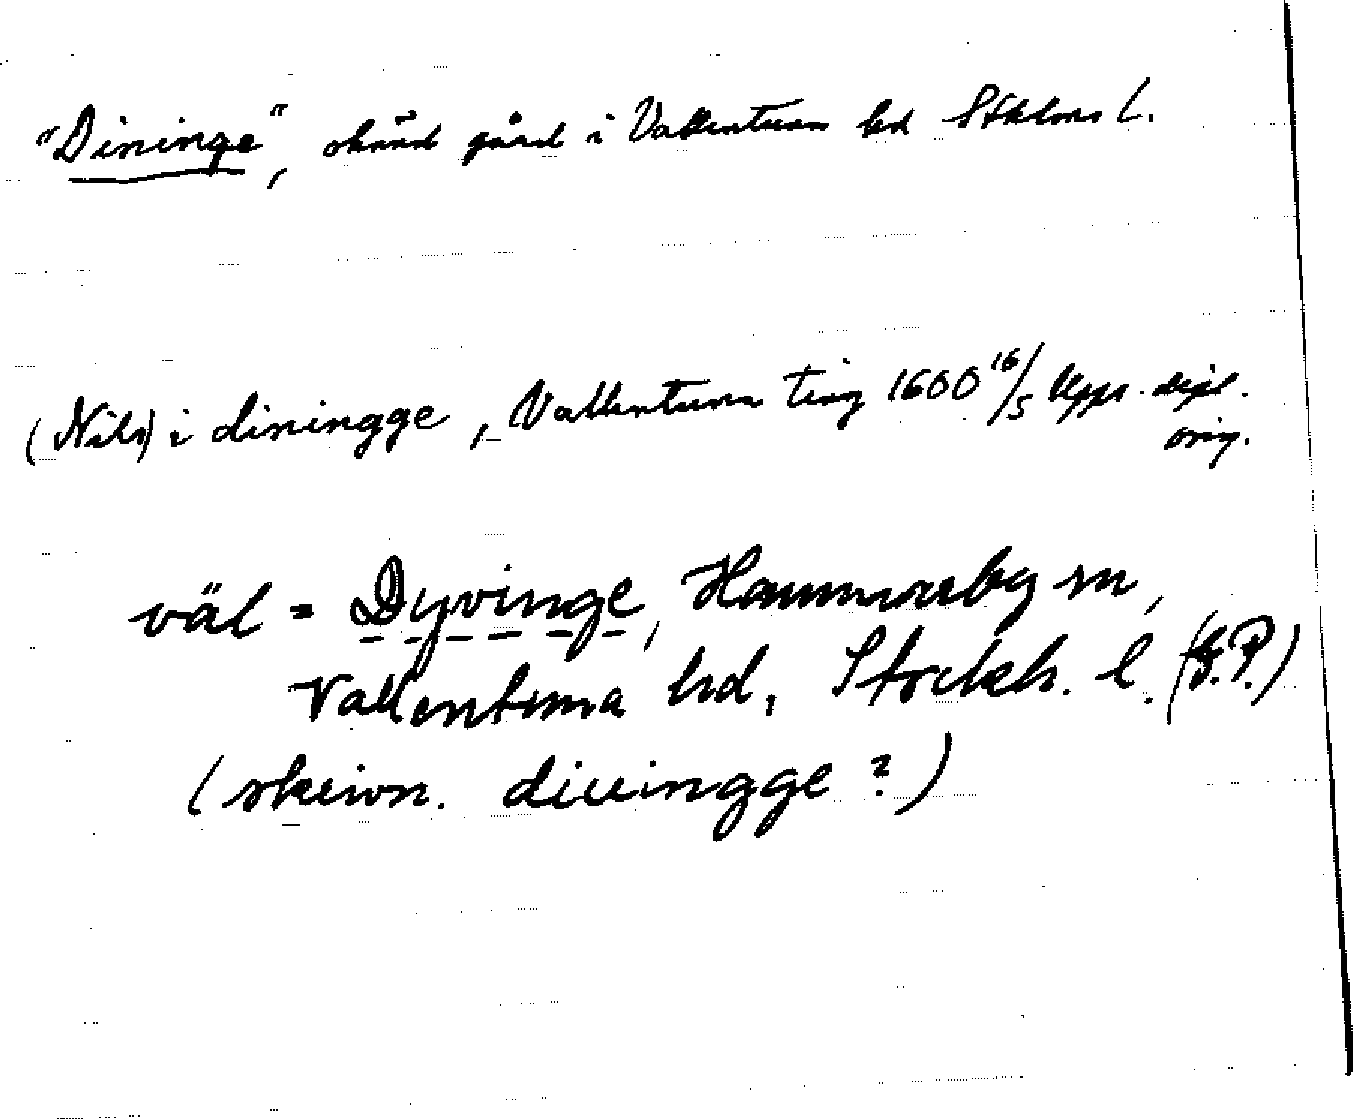 "Dininge", okänd gård i Vallentuna hd Sthlms l.
(Nils) i diningge, Vallentuna ting 1600 16/5 Upps. dipl.
orig.
väl = Dyvinge, Hammarby sn,
Vallentuna hd, Stockh. l. (G.P.)
(skrivn. diuingge?)